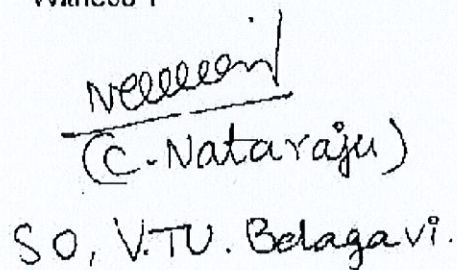 (C. Nataraju)
SO, V.TU. Belagavi.